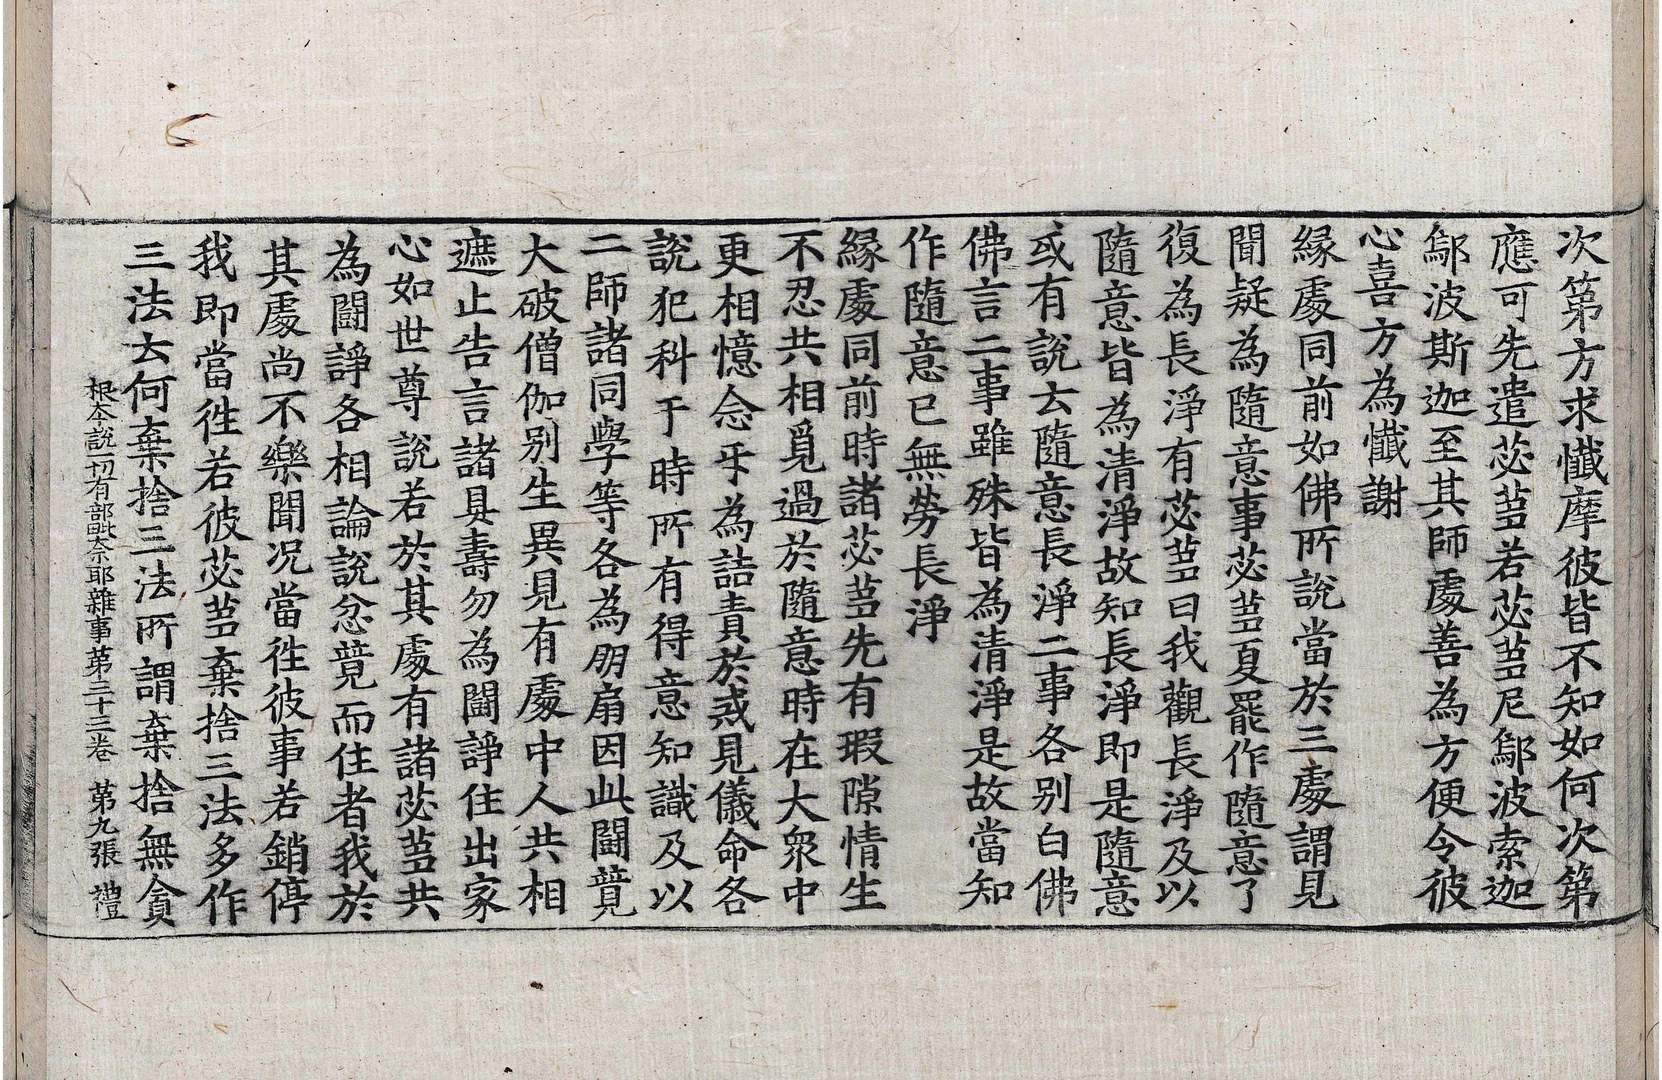 次第方求懺摩彼皆不知如何次第
應可先遣苾蒭若苾蒭尼鄔波索迦
鄔波斯迦至其師處善為方便令彼
心喜方為懺謝
緣處同前如佛所說當於三處謂見
聞疑為隨意事苾蒭夏罷作隨意了
復為長淨有苾蒭曰我觀長淨及以
隨意皆為清淨故知長淨即是隨意
或有說云隨意長淨二事各別白佛
佛言二事雖殊皆為清淨是故當知
作隨意已無勞長淨
緣處同前時諸苾蒭先有瑕隙情生
不忍共相覓過於隨意時在大眾中
更相憶念乎為詰責於戒見儀命各
說犯科于時所有得意知識及以
二師諸同學等各為朋扇因此鬪競
大破僧伽別生異見有處中人共相
遮止告言諸具壽勿為鬪諍住出家
心如世尊說若於其處有諸苾蒭共
為鬪諍各相論說忿競而住者我於
其處尚不樂聞况當往彼事若銷停
我即當往若彼苾蒭棄捨三法多作
三法云何棄捨三法所謂棄捨無貪
根本說一切有部毗奈耶雜事第三十三卷 第九張 禮